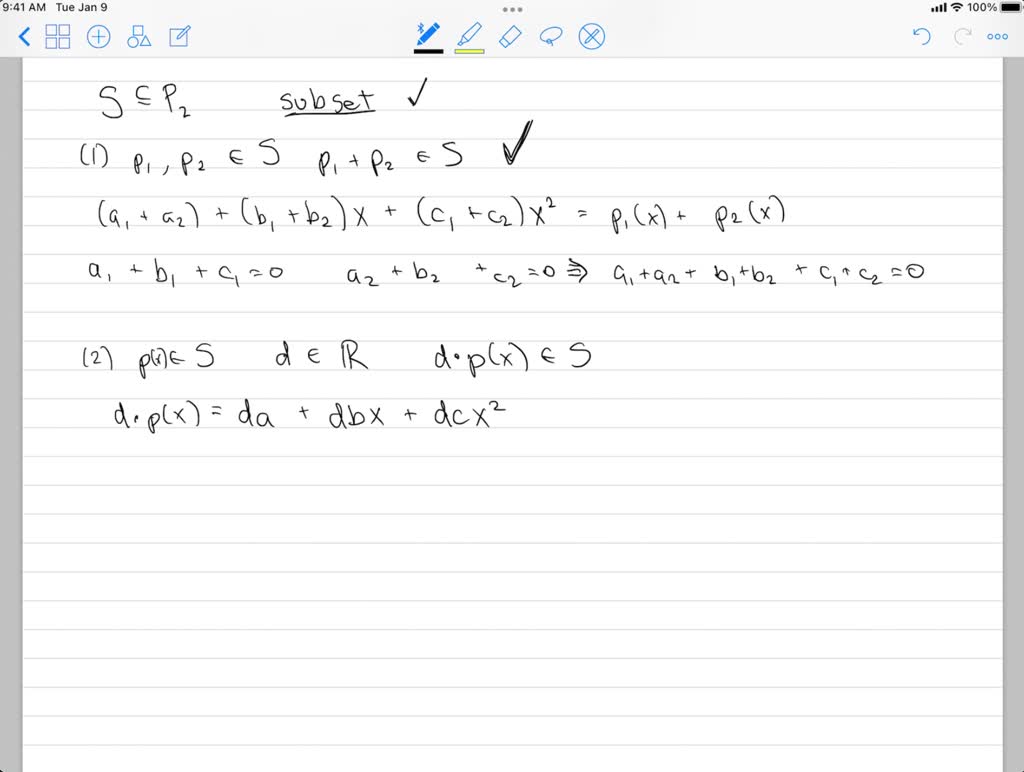 9:41 AM Tue Jan 9 100%
S ⊆ P₂ subset ✓
(1) p₁, p₂ ∈ S p₁ + p₂ ∈ S ✓
(a₁ + a₂) + (b₁ + b₂)x + (c₁ + c₂)x² = p₁(x) + p₂(x)
a₁ + b₁ + c₁ = 0 a₂ + b₂ + c₂ = 0 ⇒ a₁ + a₂ + b₁ + b₂ + c₁ + c₂ = 0
(2) p(x) ∈ S d ∈ ℝ d·p(x) ∈ S
d·p(x) = da + dbx + dcx²